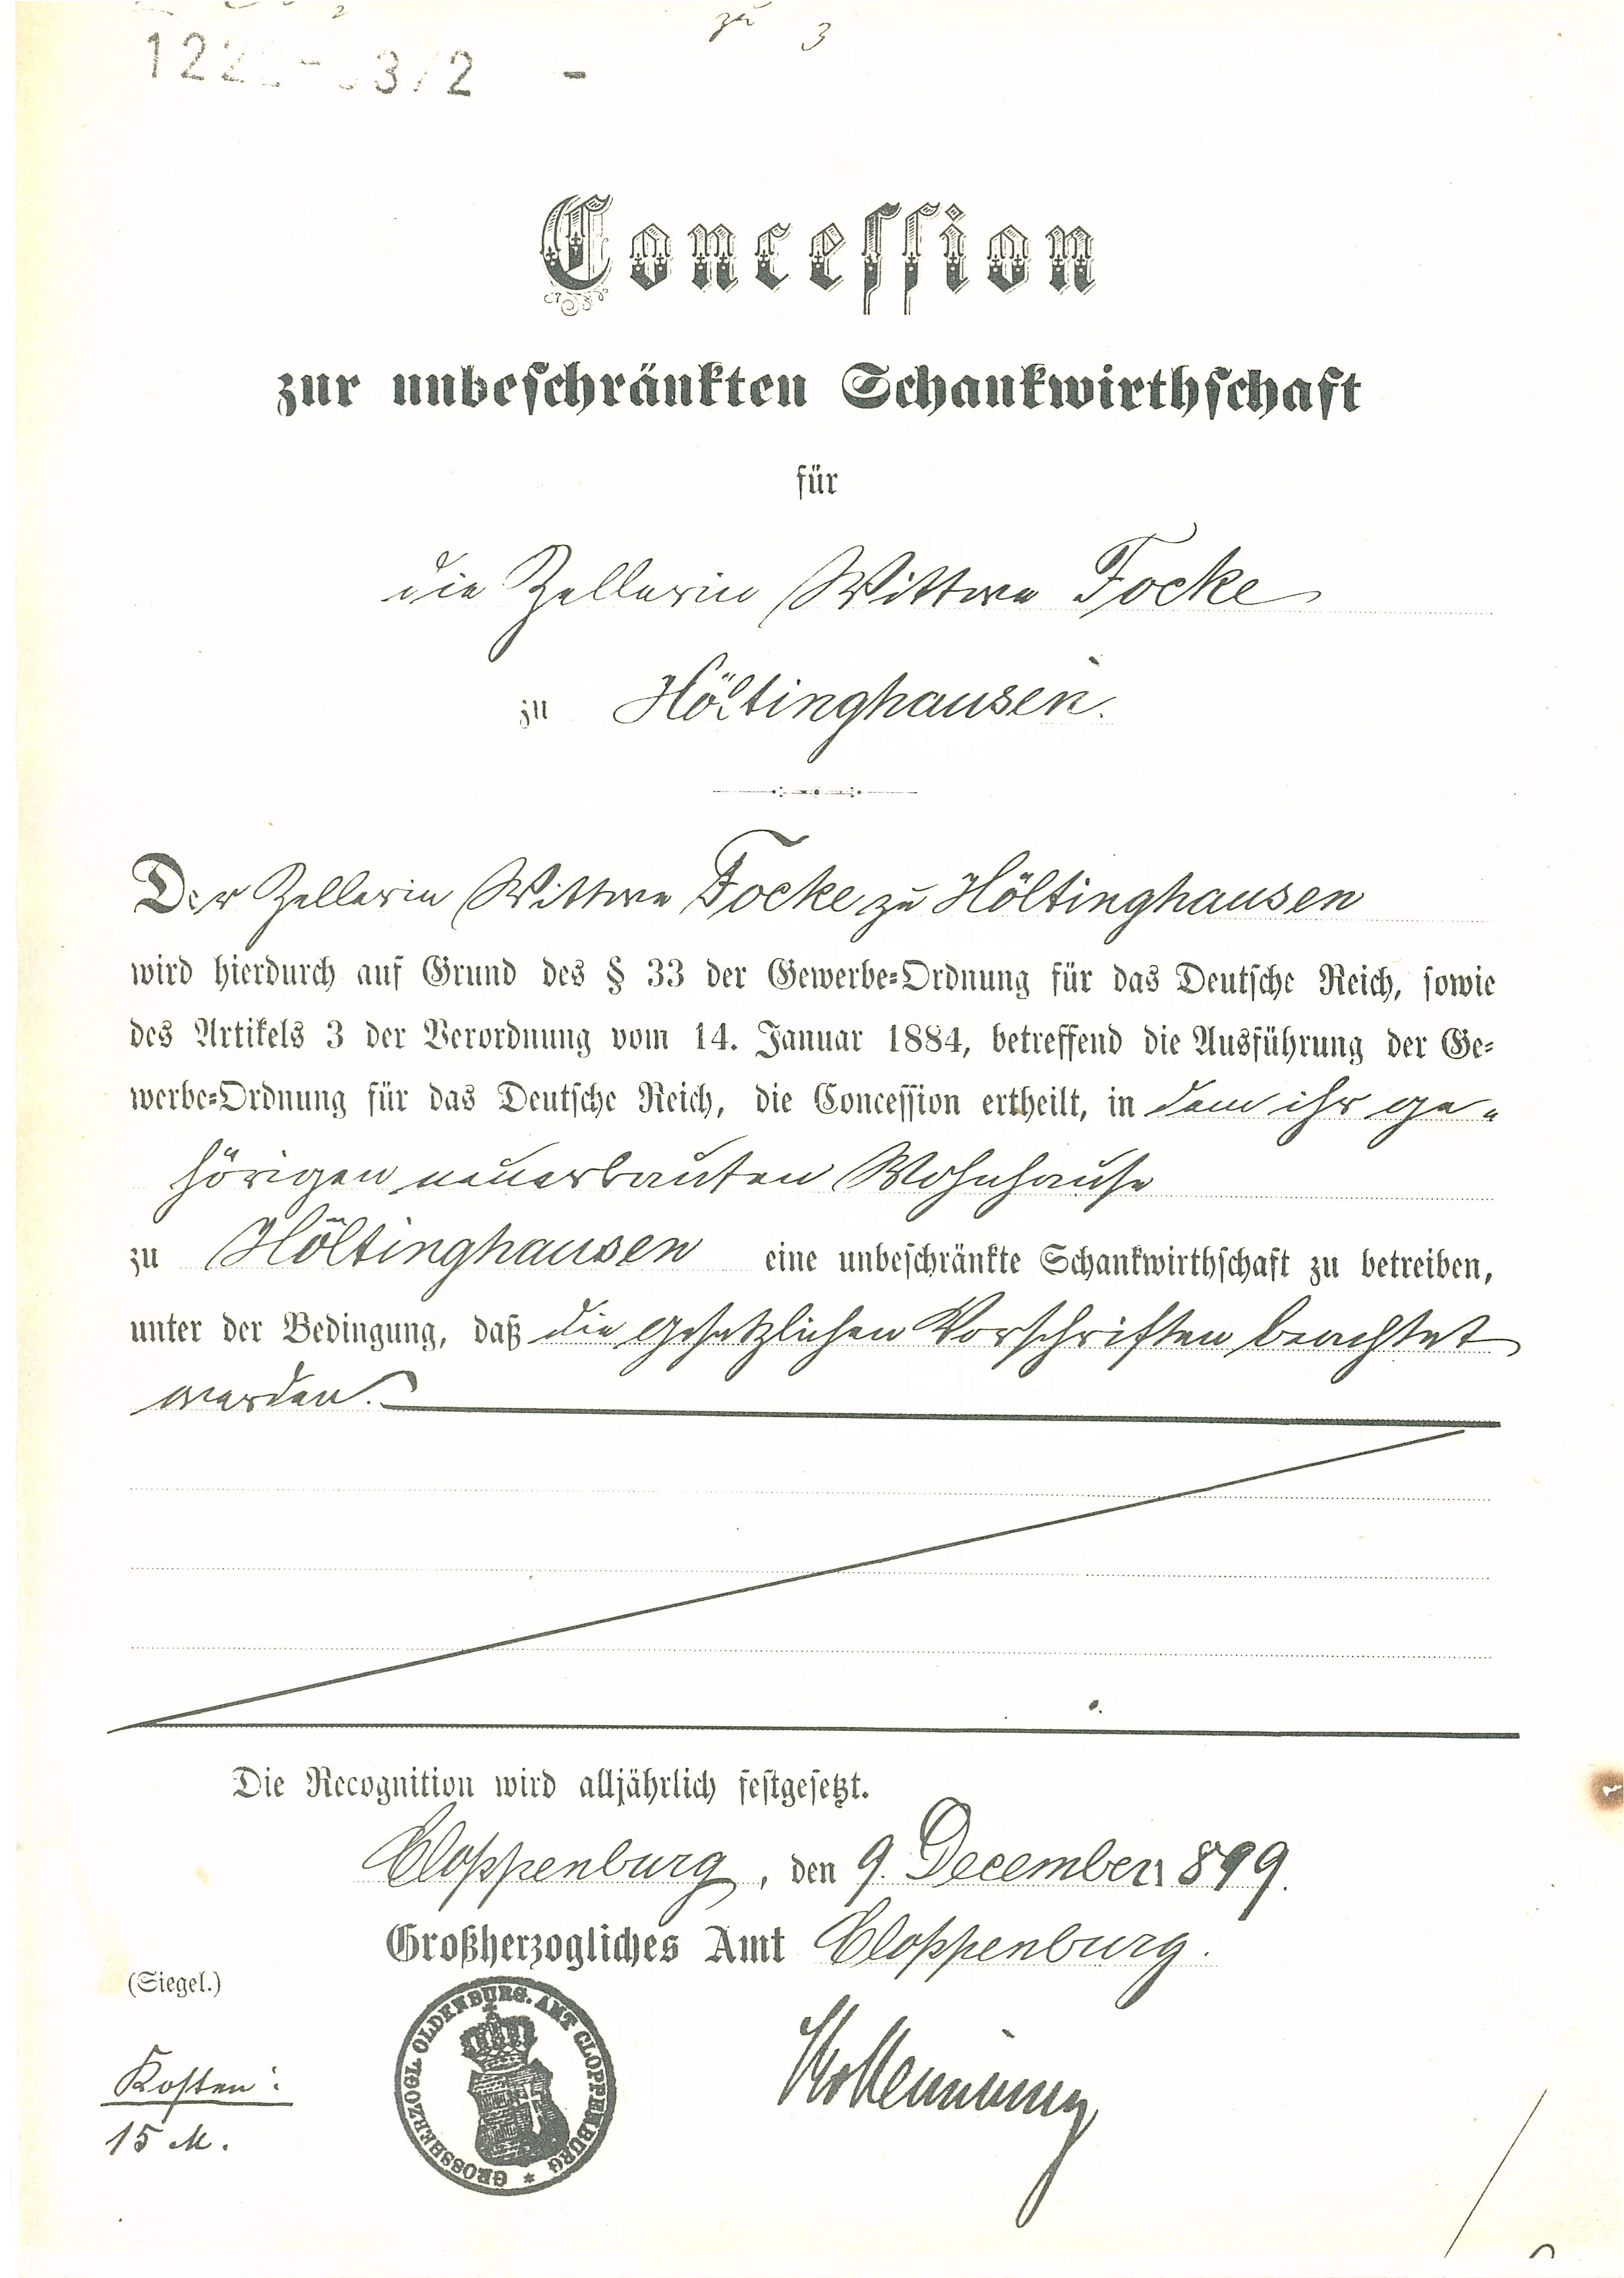 zu 3
Concession
zur unbeschränkten Schankwirthschaft
für
die Zellerin Wittwe Focke
zu Höltinghausen.
Der Zellerin Wittwe Focke zu Höltinghausen
wird hierdurch auf Grund des § 33 der Gewerbe-Ordnung für das Deutsche Reich, sowie
des Artikels 3 der Verordnung vom 14. Januar 1884, betreffend die Ausführung der Ge-
werbe-Ordnung für das Deutsche Reich, die Concession ertheilt, in dem ihr ge-
hörigen neuerbauten Wohnhause
zu Höltinghausen eine unbeschränkte Schankwirthschaft zu betreiben,
unter der Bedingung, daß die gesetzlichen Vorschriften beachtet
werden.
Die Recognition wird alljährlich festgesetzt.
Cloppenburg, den 9. December 1899.
Großherzogliches Amt Cloppenburg.
(Siegel.)
GROSSHERZOGL. OLDENBURG. AMT CLOPPENBURG *
Kosten:
15 M.